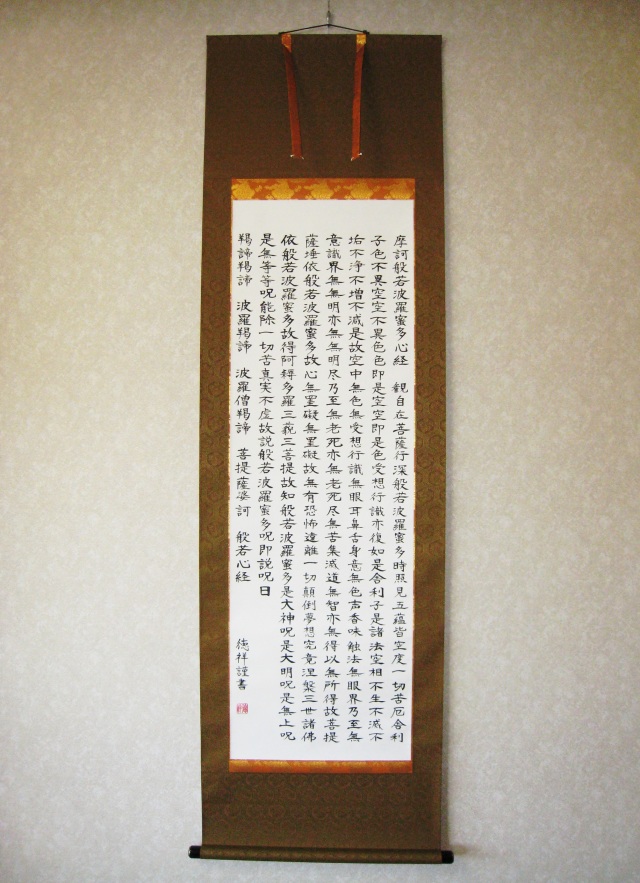 摩訶般若波羅蜜多心経　観自在菩薩行深般若波羅蜜多時照見五蘊皆空度一切苦厄舎利
子色不異空空不異色色即是空空即是色受想行識亦復如是舎利子是諸法空相不生不滅不
垢不浄不増不減是故空中無色無受想行識無眼耳鼻舌身意無色声香味触法無眼界乃至無
意識界無無明亦無無明尽乃至無老死亦無老死尽無苦集滅道無智亦無得以無所得故菩提
薩埵依般若波羅蜜多故心無罣礙無罣礙故無有恐怖遠離一切顛倒夢想究竟涅槃三世諸佛
依般若波羅蜜多故得阿耨多羅三藐三菩提故知般若波羅蜜多是大神呪是大明呪是無上呪
是無等等呪能除一切苦真実不虚故説般若波羅蜜多呪即説呪曰
羯諦羯諦　波羅羯諦　波羅僧羯諦　菩提薩婆訶　般若心経
徳祥謹書